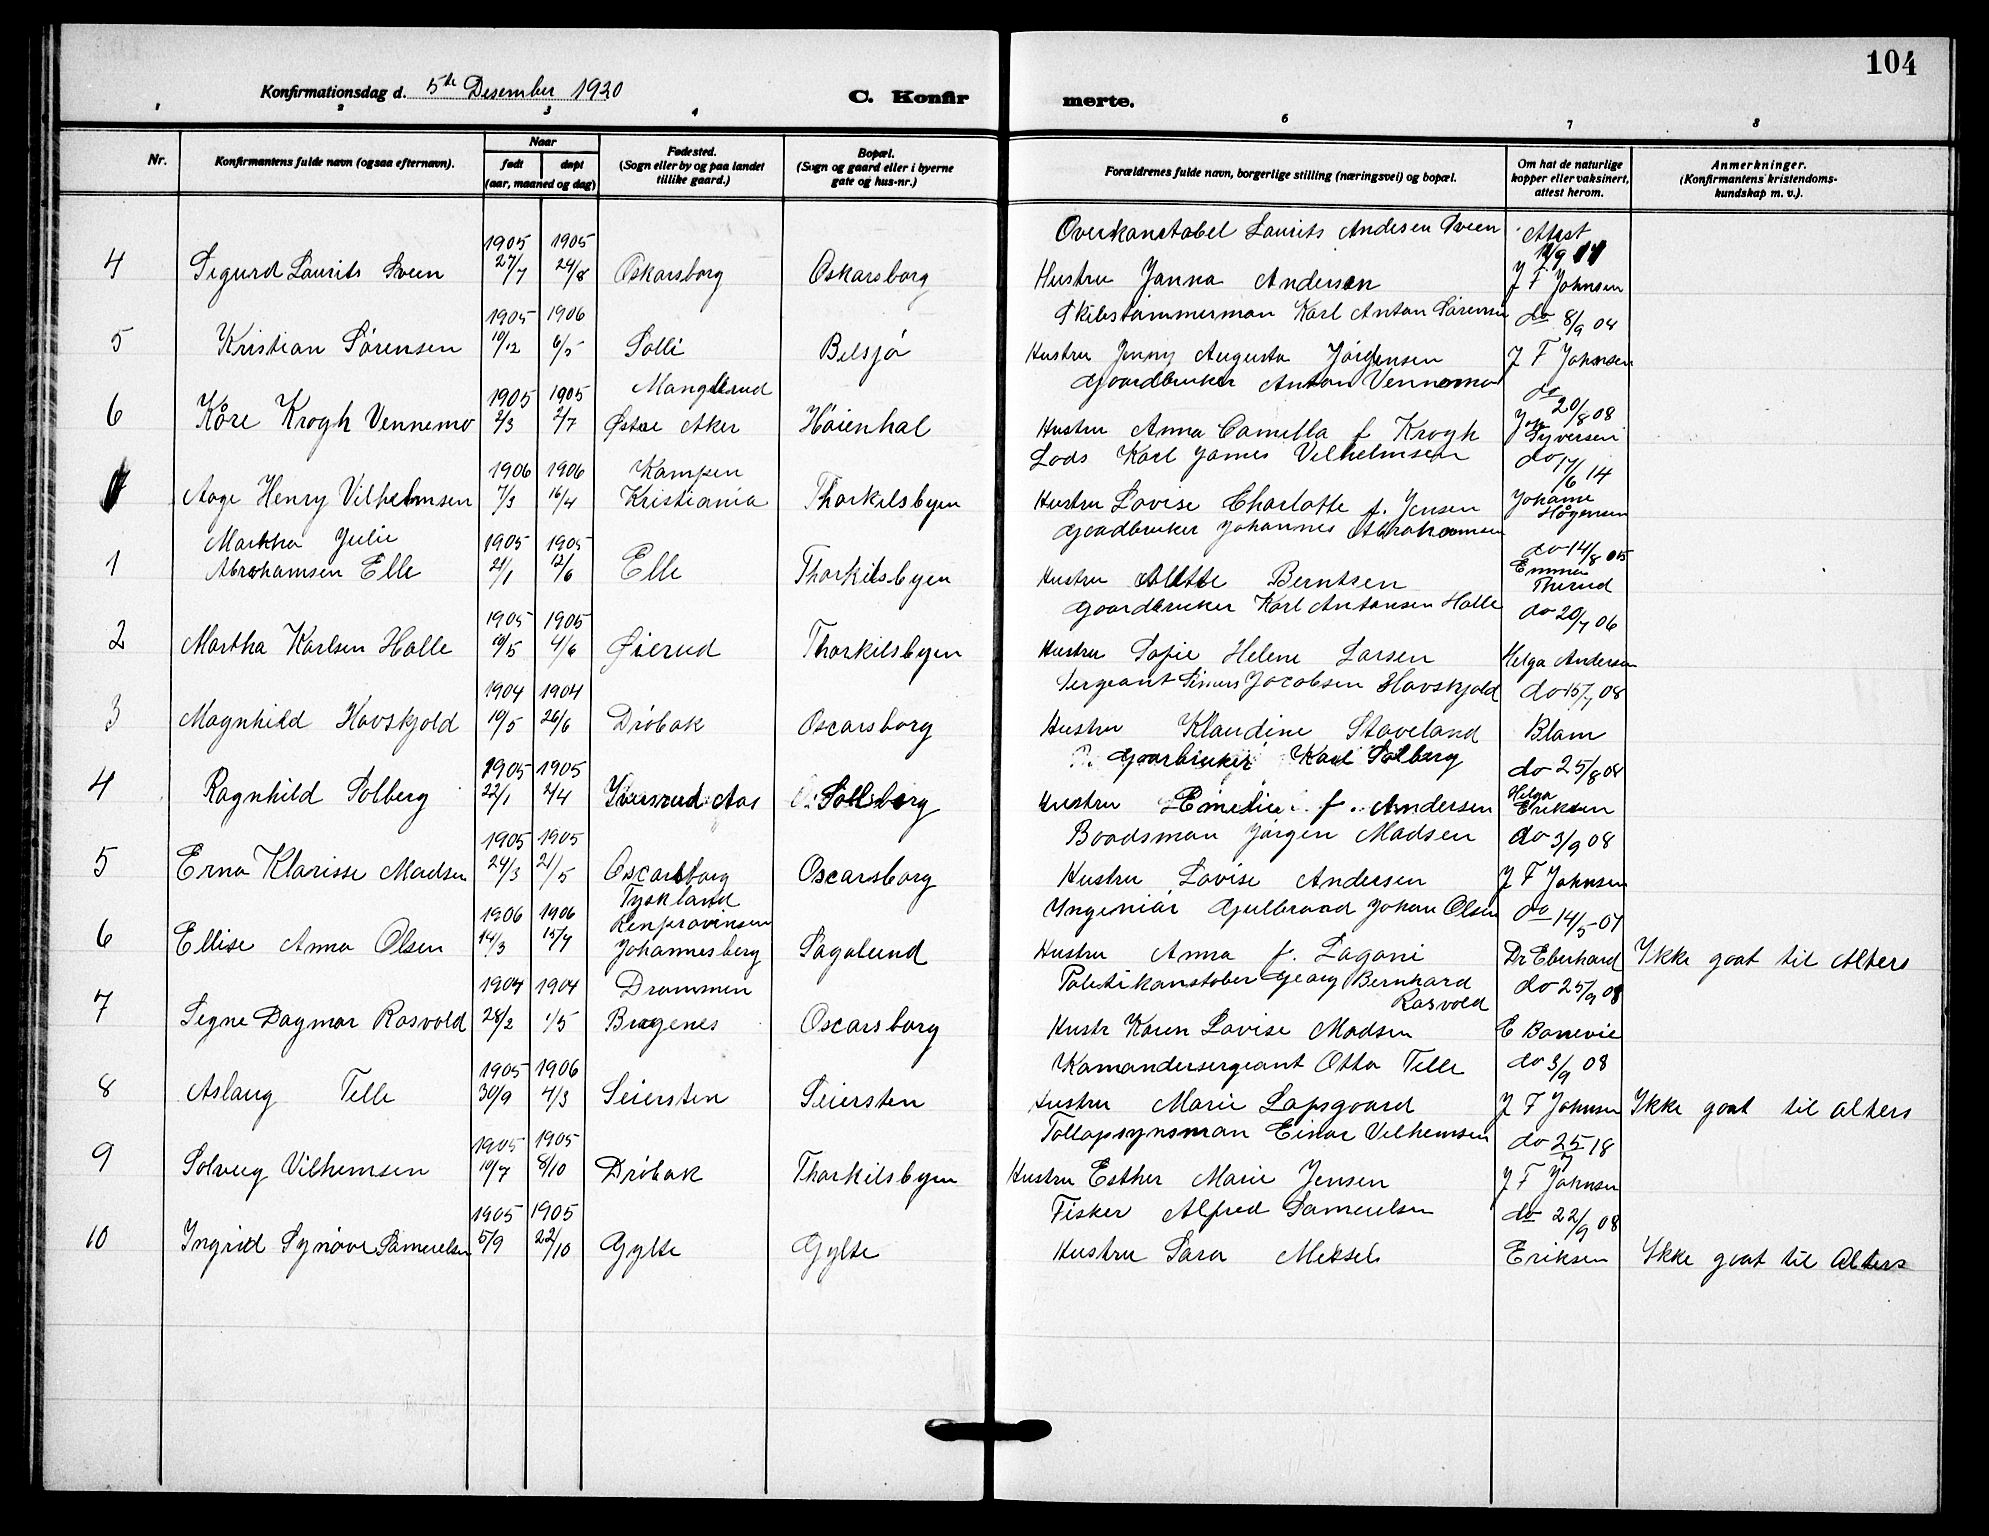 104
Konfirmationsdag d. 5te Desember 1920
C. Konfir merte.
1 2 3 4 6 7 8
Nr. Konfirmantens fulde navn (ogsaa efternavn). Naar født døpt (aar, maaned og dag) Fødested. (Sogn eller by og paa landet tillike gaard.) Bopæl. (Sogn og gaard eller i byerne gate og hus-nr.) Forældrenes fulde navn, borgerlige stilling (næringsvei) og bopæl. Om hat de naturlige kopper eller vaksinert, attest herom. Anmerkninger. (Konfirmantens kristendomskundskap m. v.).
1905 1905 Overkonstabel Laurits Andersen Sveen Attest
4 Sigurd Laurits Sveen 27/7 24/8 Oskarsborg Oskarsborg Hustru Janna Andersen J F Johnsen
1905 1906 Skibstømmerman Karl Anton Sørensen do 8/9 08
5 Kristian Sørensen 10/12 6/5 Solli Belsjø Hustru Jenny Augusta Jørgensen J F Johnsen
1905 1905 Manglerud Gaardbruker Anton Vennemo do 20/8 08
6 Kåre Krogh Vennemo 2/3 2/7 Østre Aker Høienhal Hustru Anna Camilla f Krogh Syversen
1906 1906 Kampen Lods Karl James Vilhelmsen do 17/6 14
7 Aage Henry Vilhelmsen 7/3 16/4 Kristiania Thorkilsbyen Hustru Lovise Charlotte f. Jensen Johanne Hågensen
Martha Julie 1905 1905 Gaardbruker Johannes Abrahamsen do 14/8 05
1 Abrahamsen Elle 21/1 12/6 Elle Thorkilsbyen Hustru Alette Berntsen Emma Therud
1905 1905 Gaardbruker Karl Antonsen Halle do 20/7 06
2 Martha Karlsen Halle 10/5 4/6 Øierud Thorkilsbyen Hustru Sofie Helene Larsen Helga Andersen
1904 1904 Sergeant Simers Jacobsen Havskjold do 15/7 08
3 Magnhild Havskjold 19/5 26/6 Drøbak Oscarsborg Hustru Klaudine Staveland Blom
1905 1905 Gaarbruker Karl Solberg do 25/8 08
4 Ragnhild Solberg 22/1 2/4 Yversrud Aas Solberg Hustru Emelie f. Andersen Helga Eriksen
1905 1905 Baadsman Jørgen Madsen do 3/9 08
5 Erna Klarisse Madsen 24/3 21/5 Oscarsborg Oscarsborg Hustru Lovise Andersen J F Johnsen
1906 1906 Tyskland Renprovinsen Yngeniør Gulbrand Johan Olsen do 14/5 07
6 Ellise Anna Olsen 14/3 15/4 Johannesberg Sagalund Hustru Anna f. Lagoni Dr Eberhard Ikke gaat til Alters
1904 1904 Drammen Politikonstabel Georg Bernhard Rasvold do 25/9 08
7 Signe Dagmar Rosvold 28/2 1/5 Bragenes Oscarsborg Hustr Karen Lovise Madsen E Bonnevie
1905 1906 Kamandersergeant Otto Telle do 3/9 08
8 Aslaug Telle 30/9 4/3 Seiersten Seiersten Hustru Marie Lapsgaard J F Johnsen Ikke gaat til alters
1905 1905 Tollopsynsman Einar Vilhemsen do 25/7 18
9 Solveig Vilhemsen 10/7 8/10 Drøbak Thorkilsbyen Hustru Esther Marie Jensen J F Johnsen
1905 1905 Fisker Alfred Samuelsen do 22/9 08
10 Ingrid Synøve Samuelsen 5/9 22/10 Gylte Gylte Hustru Sara Meksels Eriksen Ikke gaat til Alters